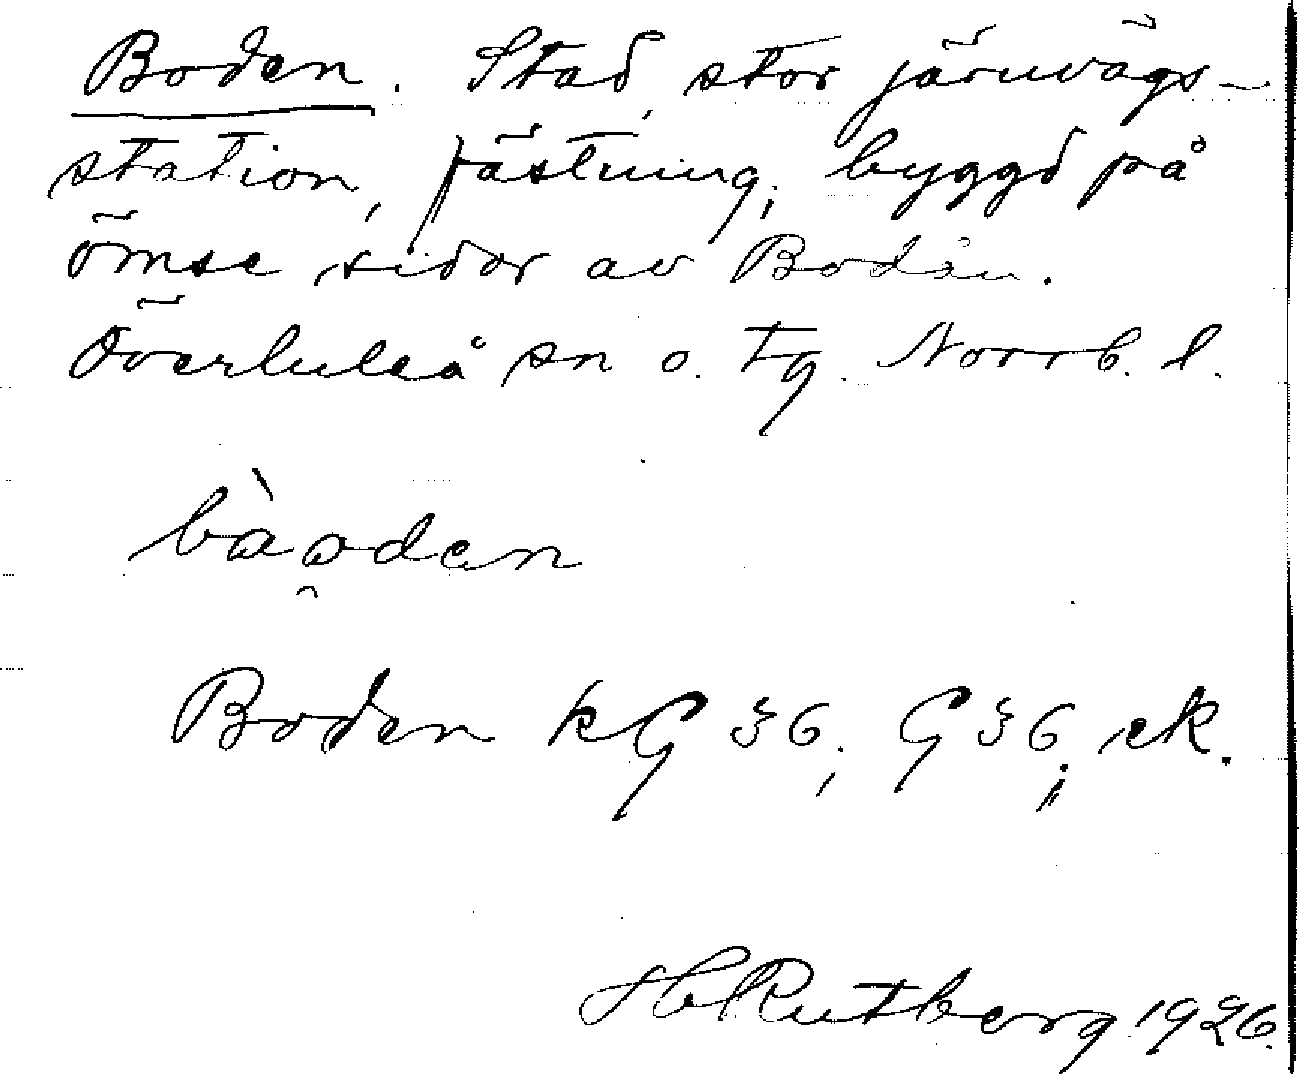 Boden. Stad, stor järnvägs-
station, fästning, byggd på
ömse sidor av Bodån.
Överluleå sn o. tg. Norrb. l.
bàoden
Boden kG 36; G 36; ek.
H Rutberg 1926.